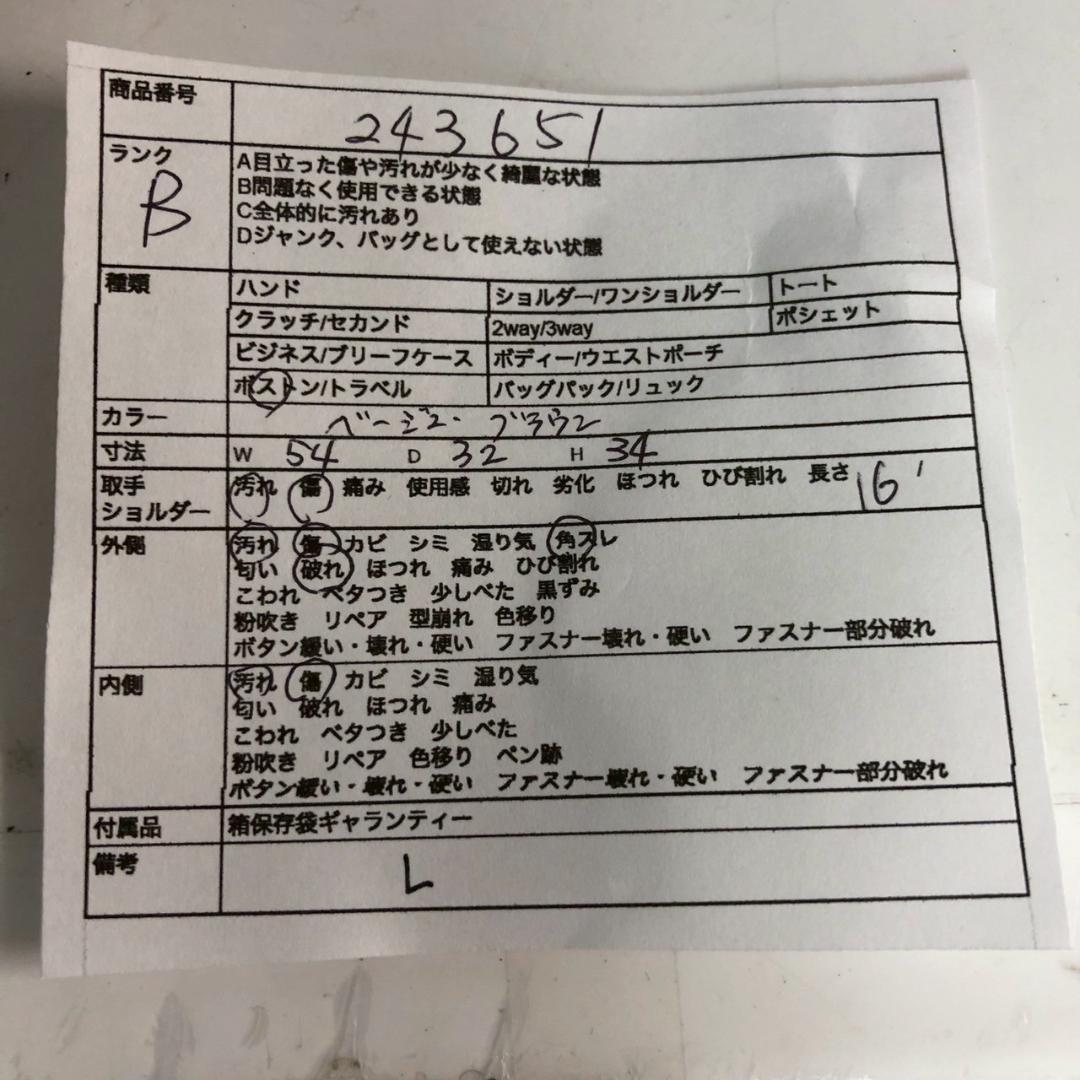 商品番号 243651
ランク B
A目立った傷や汚れが少なく綺麗な状態
B問題なく使用できる状態
C全体的に汚れあり
Dジャンク、バッグとして使えない状態
種類 ハンド ショルダー/ワンショルダー トート
クラッチ/セカンド 2way/3way ポシェット
ビジネス/ブリーフケース ボディー/ウエストポーチ
ボストン/トラベル バッグパック/リュック
カラー ベージュ・ブラウン
寸法 W 54 D 32 H 34
取手 汚れ 傷 痛み 使用感 切れ 劣化 ほつれ ひび割れ 長さ 16
ショルダー
外側 汚れ 傷 カビ シミ 湿り気 角スレ
匂い 破れ ほつれ 痛み ひび割れ
こわれ ベタつき 少しべた 黒ずみ
粉吹き リペア 型崩れ 色移り
ボタン緩い・壊れ・硬い ファスナー壊れ・硬い ファスナー部分破れ
内側 汚れ 傷 カビ シミ 湿り気
匂い 破れ ほつれ 痛み
こわれ ベタつき 少しべた
粉吹き リペア 色移り ペン跡
ボタン緩い・壊れ・硬い ファスナー壊れ・硬い ファスナー部分破れ
付属品 箱保存袋ギャランティー
備考 L